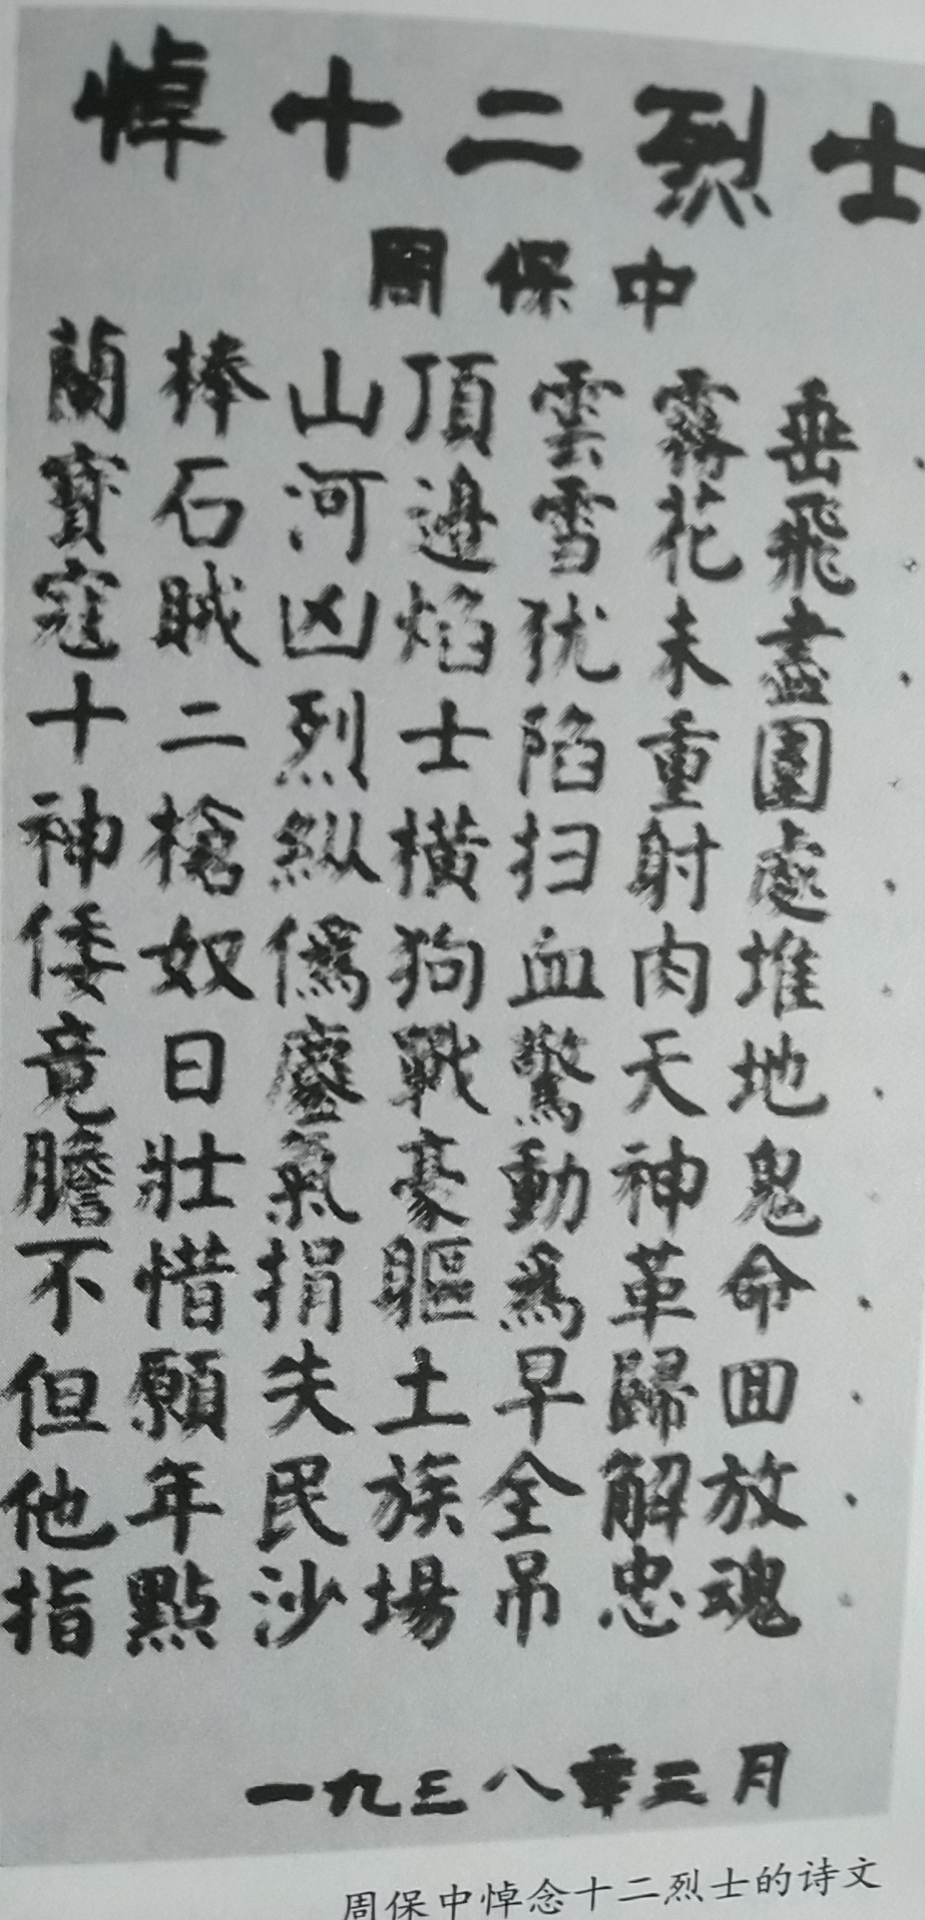 悼十二烈士
周保中
蘭棒山頂雲霧垂
寶石河邊雪花飛
寇賊凶焰犹未盡
十二烈士陷重圍
神槍縱橫扫射處
倭奴僞狗血肉堆
竟日鏖戰驚天地
膽壯氣豪動神鬼
不惜捐軀爲革命
但願失土早歸回
他年民族全解放
指點沙場吊忠魂
一九三八年三月
周保中悼念十二烈士的诗文